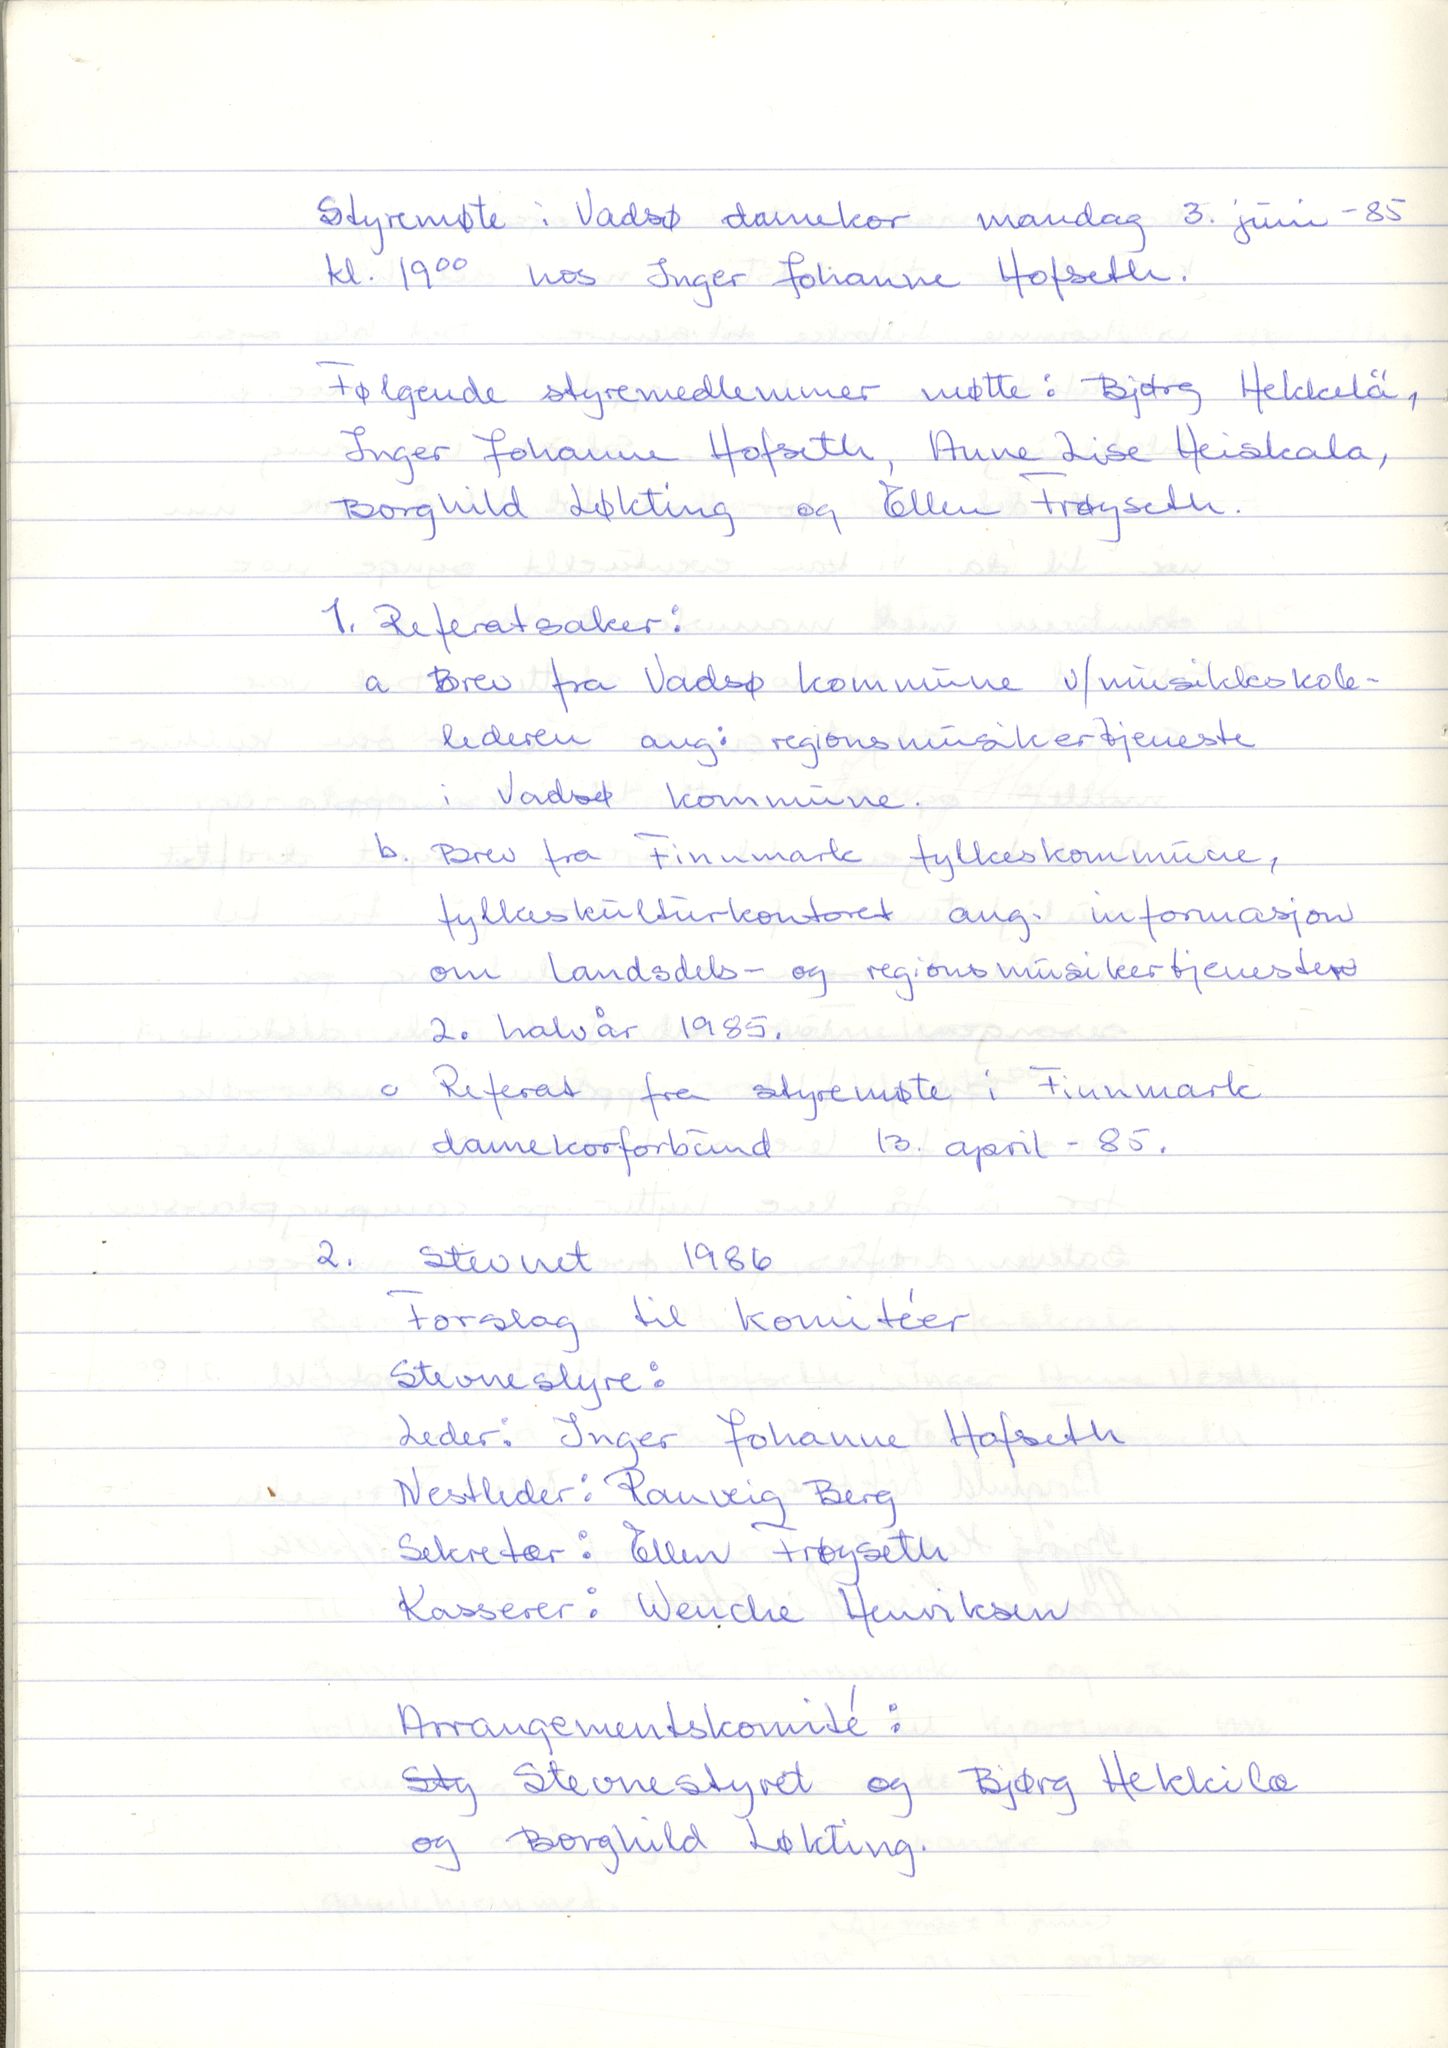 Styremøte i Vadsø damekor mandag 3. juni -85
kl. 19⁰⁰ hos Inger Johanne Hofseth.
Følgende styremedlemmer møtte: Bjørg Hekkelä,
Inger Johanne Hofseth, Anne Lise Heiskala,
Borghild Løkting og Ellen Frøyseth.
1. Referatsaker:
a Brev fra Vadsø kommune v/musikkskole-
lederen ang: regionsmusikertjeneste
i Vadsø kommune.
b. Brev fra Finnmark fylkeskommune,
fylkeskulturkontoret ang. informasjon
om landsdels- og regionsmusikertjenesten
2. halvår 1985.
c Referat fra styremøte i Finnmark
damekorforbund 13. april -85.
2. Stevnet 1986
Forslag til komitéer
Stevnestyre:
Leder: Inger Johanne Hofseth
Nestleder: Ranveig Berg
Sekretær: Ellen Frøyseth
Kasserer: Wenche Henriksen
Arrangementskomité:
Sty Stevnestyret og Bjørg Hekkila
og Borghild Løkting.